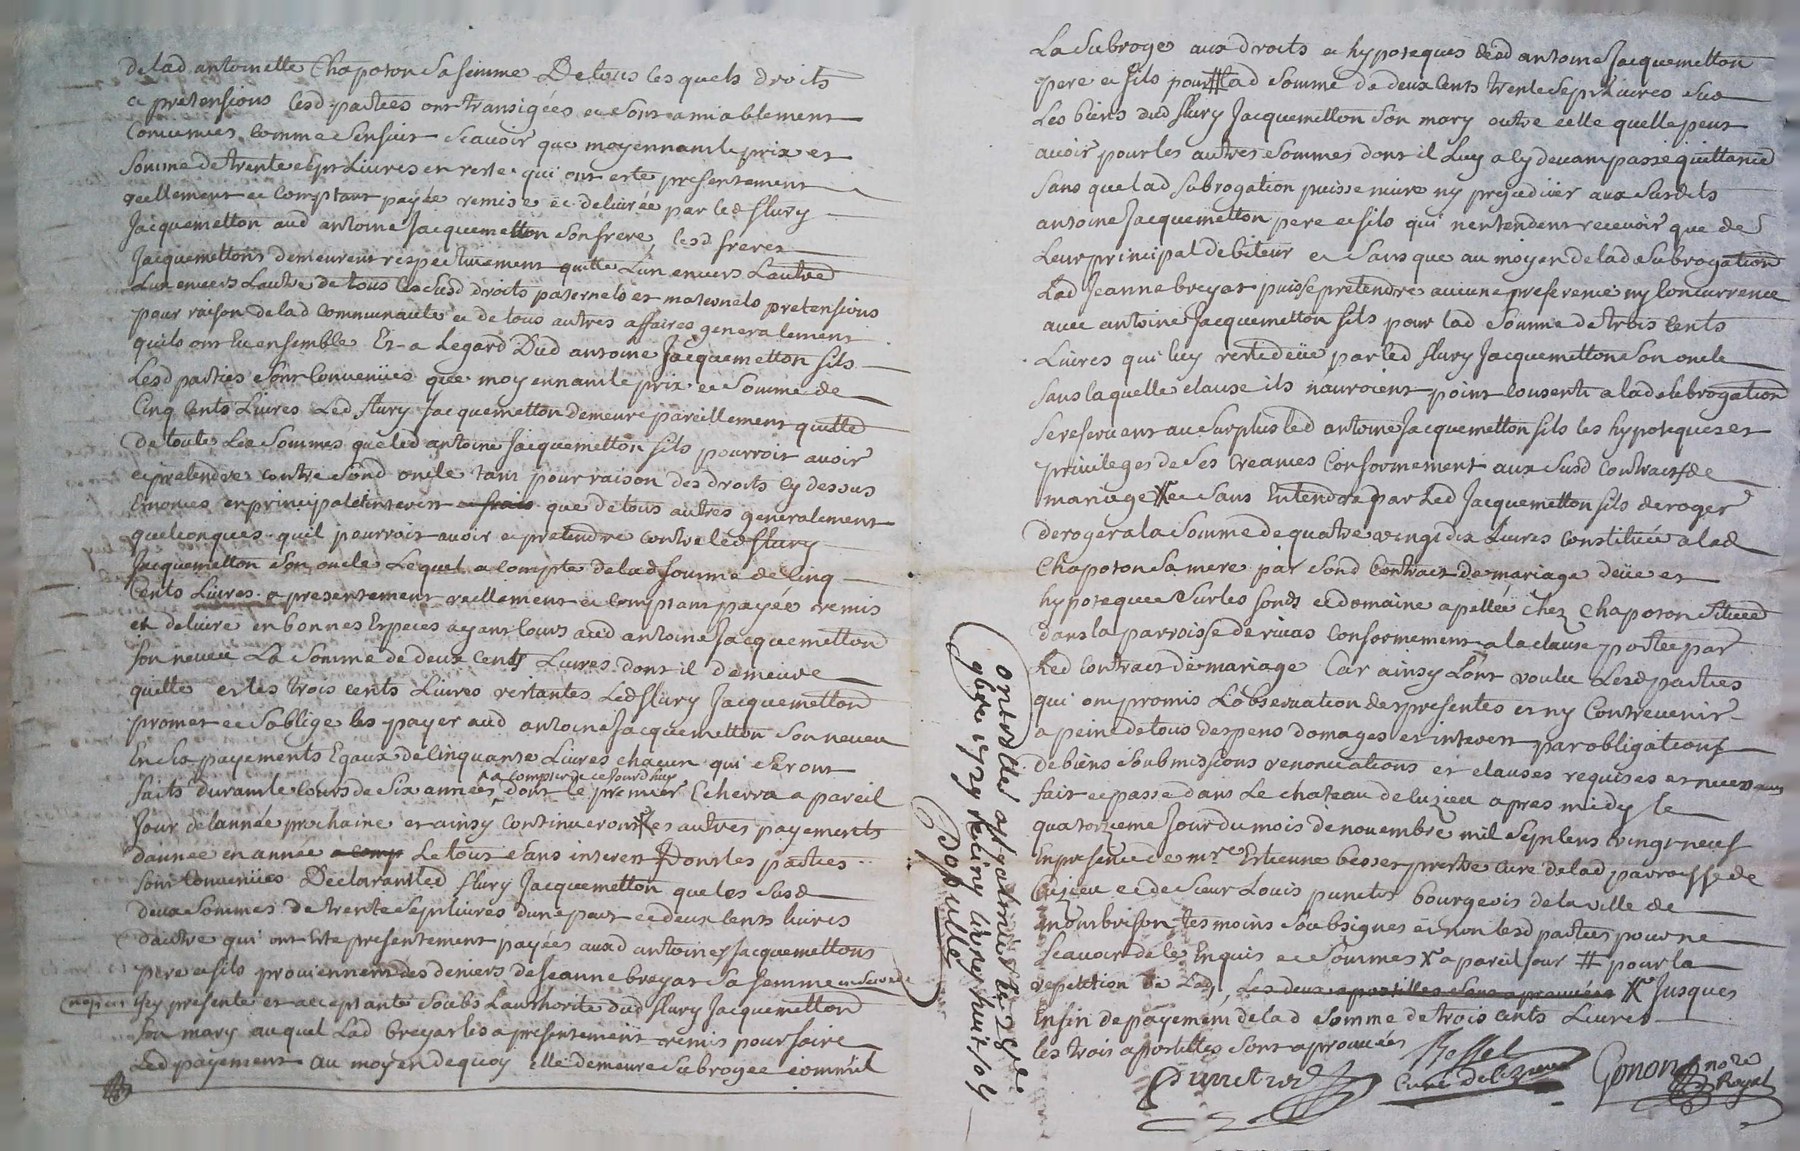 delad antoinette Chapoton Sa femme De tous les quels droits
et pretensions lesd parties ont transigées et sont amiablement
Convenues comme s'ensuit Scavoir que moyennant le prix et
Somme de trente sept Livres en reste qui ont esté presentement
reellement et comptant payée remise et delivrée par led flury
Jacquemetton aud antoine Jacquemetton son frere, lesd freres
Jacquemettons demeurent respectivement quitte L'un envers Lautre
L'un envers Lautre de tous lesusd droits paternels et maternels pretensions
pour raison de lad communauté et de tous autres affaires generalement
quils ont eu ensemble Et a Legard Dud antoine Jacquemetton fils
Lesd parties sont convenües que moyennant le prix et Somme de
Cinq cents Livres Led flury Jacquemetton demeure pareillement quitte
de toutes Les Sommes que led antoine Jacquemetton fils pourroit avoir
et pretendre contre sond oncle tant pour raison des droits cy dessus
Enoncés en principal et interest et frais que de tous autres generalement
quelconques quil pourroit avoir et pretendre contre led flury
Jacquemetton Son oncle Lequel a compte de lad Somme de cinq
Cents Livres a presentement reellement et comptant payée remis
et delivré en bonnes Especes ayant cours aud antoine Jacquemetton
son neveu La Somme de deux cents Livres dont il demeure
quitte et les trois cents Livres restantes Led flury Jacquemetton
promet et s'oblige les payer aud antoine Jacquemetton Son neveu
En Six payements Egaux de cinquante Livres chacun qui seront
a compter de ce jourdhuy
faits durant le cours de Six années dont le premier Echerra a pareil
Jour de lannée prochaine et ainsy continueront les autres payements
dannée en année a comp Le tout sans interest Dont les parties
sont Convenües Declarant led flury Jacquemetton que les susd
deux Sommes de trente sept livres dune part et deux cents livres
d'autre qui ont esté presentement payées aux d antoines Jacquemettons
pere et fils proviennent des deniers de Jeanne breyat Sa femme
Icy presente et acceptante soubs Lauthorité dud flury Jacquemetton
Son mary auquel Lad breyat les a presentement remis pour faire
Led payement au moyen de quoy elle demeure subrogée comme il
La Subroge aux droits et hypoteques desd antoine Jacquemetton
pere et fils pour lad Somme de deux cents trente sept Livres sur
Les biens dud flury Jacquemetton Son mary outre celle quelle peut
avoir pour les autres sommes dont il Luy a cy devant passé quittance
Sans que lad Subrogation puisse nuire ny prejudicier aux susdits
antoine Jacquemetton pere et fils qui n'entendent recevoir que de
Leur principal debiteur et Sans que au moyen de lad Subrogation
Lad Jeanne breyat puisse pretendre aucune preference ny Concurrence
avec antoine Jacquemetton fils pour lad Somme de trois cents
Livres qui luy reste deüe par led flury Jacquemetton Son oncle
Sans laquelle clause ils n'auroient point consenti a lad subrogation
Se reservent au Surplus led antoine Jacquemetton fils les hypoteques et
privileges de Ses creances conformement aux susd contracts de
mariage et Sans Entendre par Led Jacquemetton fils deroger
deroger a la Somme de quatre vingt dix Livres constituée a lad
Chapoton Sa mere par sond contract de mariage deüe et
hypotequee sur les fonds et domaine apellée chez Chapoton Situee
dans la parroisse de rivas conformement a la clause portee par
Led contract de mariage Car ainsy Lont voulu Lesd parties
qui ont promis L'observation des presentes et ny contrevenir
a peine de tous despens domages et interest par obligations
de biens soubmissions renonciations et clauses requises et necessaires
fait et passé dans Le chateau de luzieu apres midy le
quatorzieme Jour du mois de novembre mil sept cens vingt neuf
En presence de mre Estienne besset prestre curé de lad parroisse de
luzieu et de Sieur Louis punctis bourgeois de la ville de
montbrison tesmoins soubsignes et non lesd parties pour ne
Scavoir de ce Enquis et Sommes a pareil jour pour la
repetition de Lad, Les deux apostilles sans aprouvées Jusques
Enfin de payement de lad Somme de trois cents Livres
les trois apostilles sont aprouvées
Besset
Curé de luzieu
Gonon nore
Royal
9bre 1729